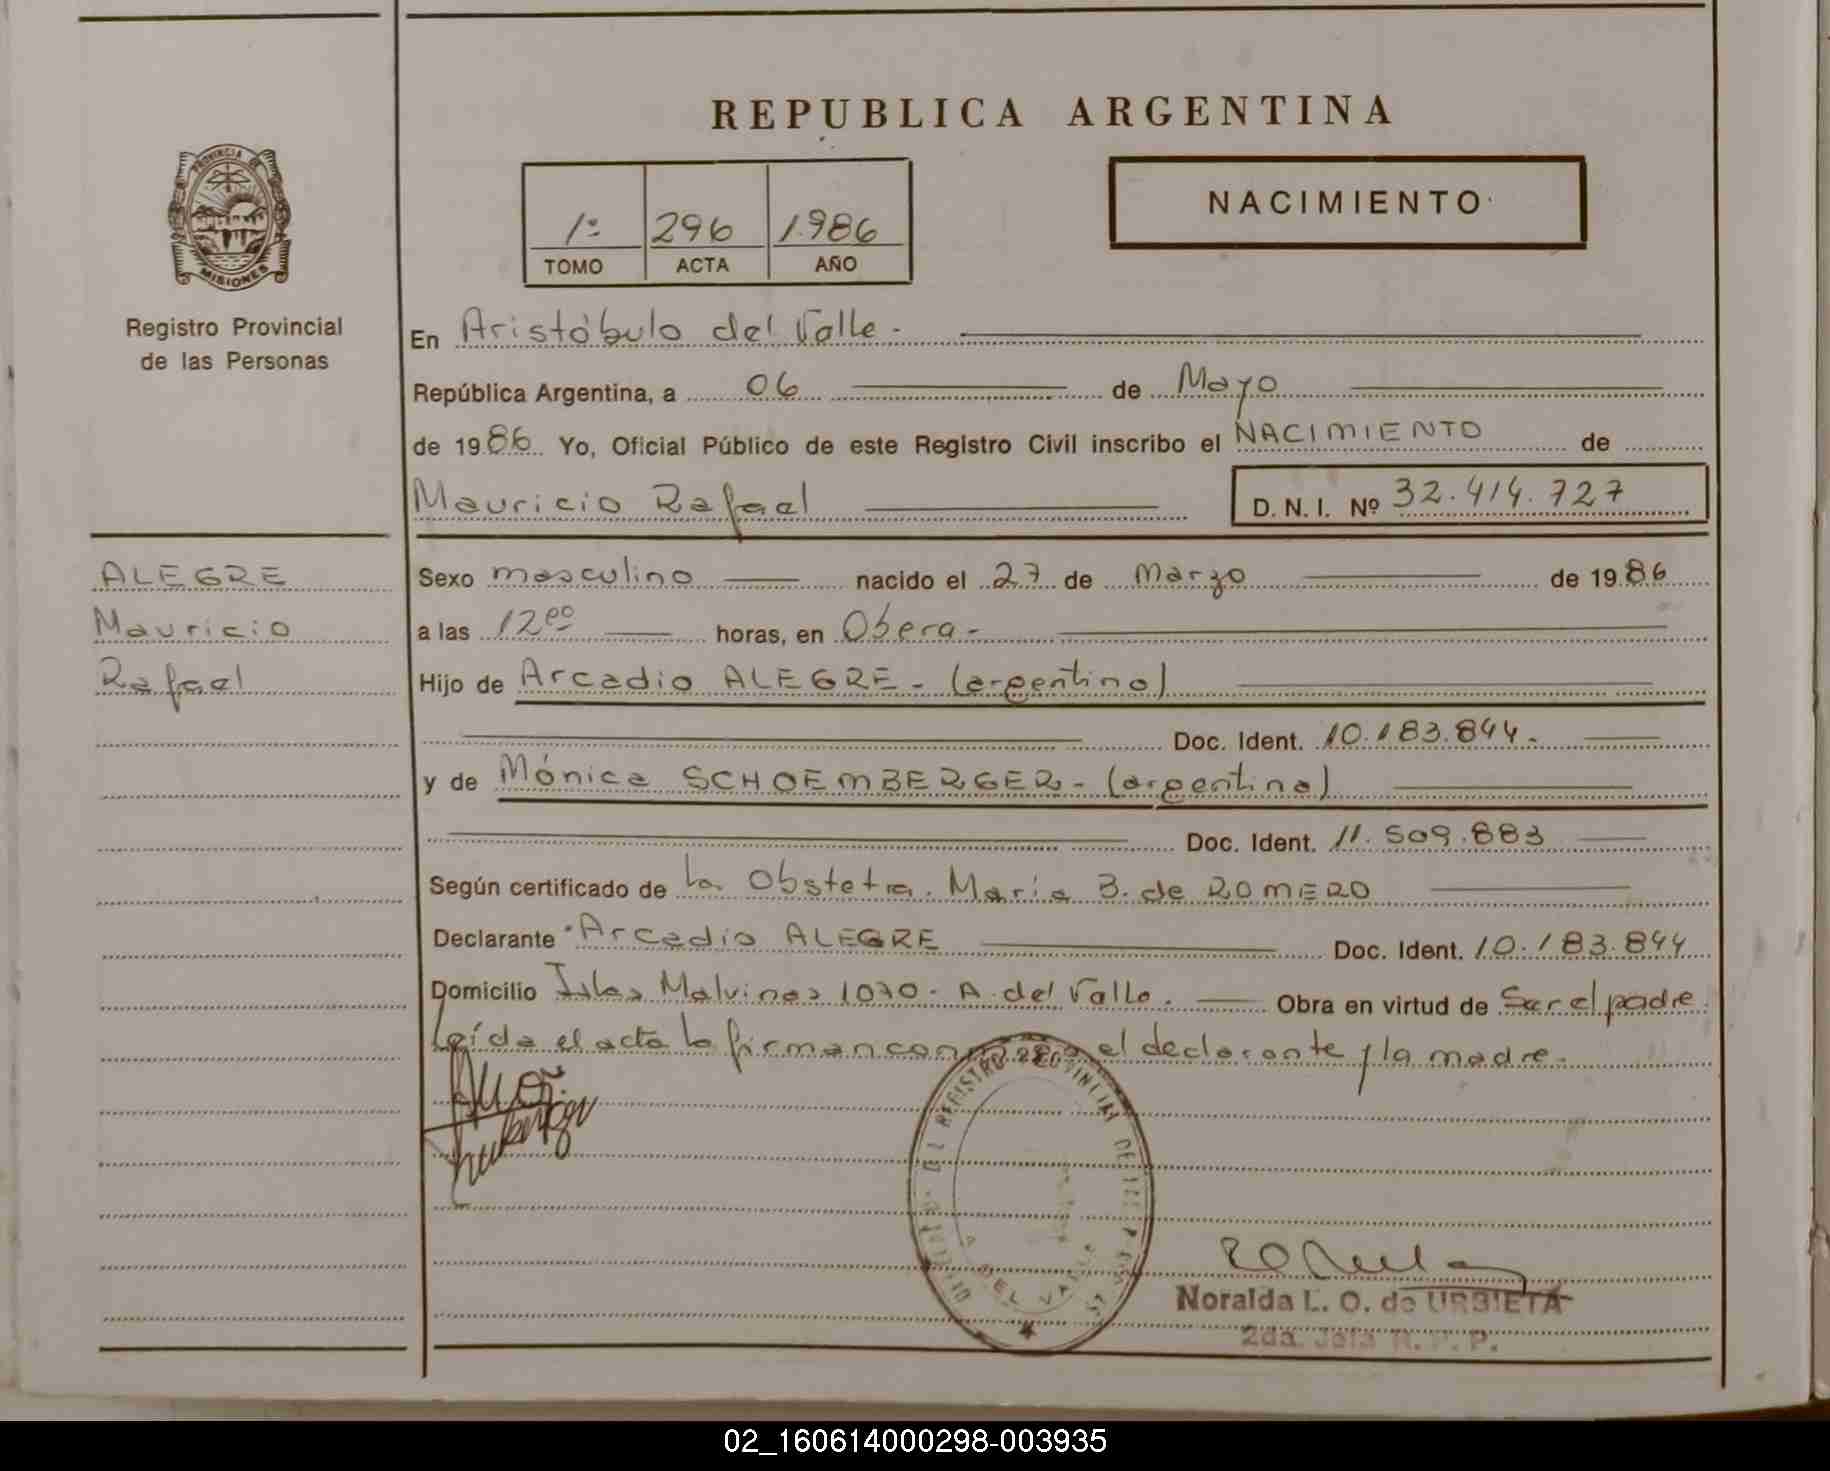 REPUBLICA ARGENTINA
PROVINCIA DE
MISIONES
Registro Provincial
de las Personas
1º 296 1.986
TOMO ACTA AÑO
NACIMIENTO
En Aristóbulo del Valle.-
República Argentina, a 06 de Mayo
de 1986 Yo, Oficial Público de este Registro Civil inscribo el NACIMIENTO de
Mauricio Rafael D. N. I. Nº 32.414.727
ALEGRE
Mauricio
Rafael
Sexo masculino nacido el 27 de Marzo de 1986
a las 12 00 horas, en Obera.-
Hijo de Arcadio ALEGRE.- (argentino)
Doc. Ident. 10.183.844.-
y de Mónica SCHOEMBERGER.- (argentina)
Doc. Ident. 11.509.883
Según certificado de la Obstetra. María B. de ROMERO
Declarante Arcadio ALEGRE Doc. Ident. 10.183.844
Domicilio Islas Malvinas 1070. A. del Valle. Obra en virtud de Ser el padre
Leída el acta la firman el declarante y la madre.
REGISTRO PROVINCIAL DE
DEL VALLE
Noralda L. O. de URBIETA
2da. Jefa R. P. P.
02_160614000298-003935